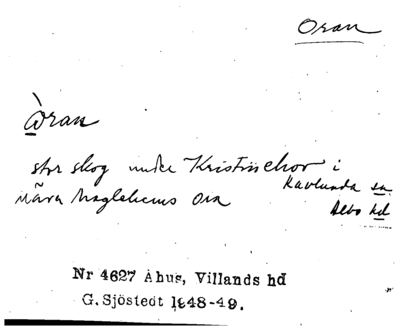 Oran
Òran
stor skog under Kristinehov i
Ravlunda sn
nära Maglehems Ora
Albo hd
Nr 4627 Åhus, Villands hd
G. Sjöstedt 1948-49.